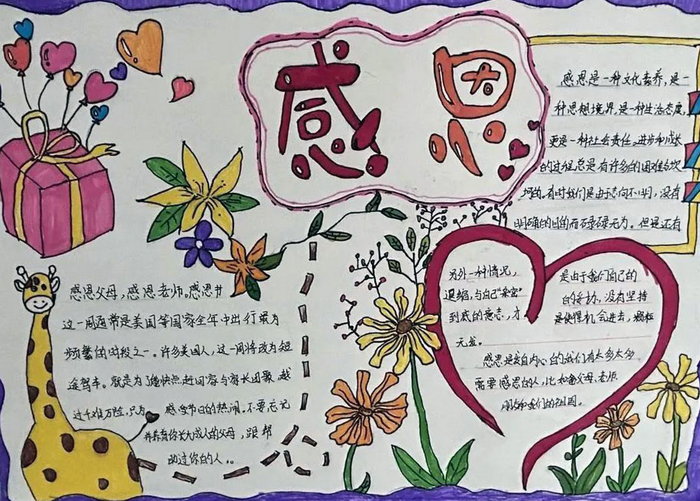 感恩
感恩是一种文化素养,是一
种思想境界,是一种生活态度,
更是一种社会责任。进步和成长
的过程总是有许多的困难与坎
坷的。有时我们是由于志向不明,没有
明确的目的而碌碌无为。但是还有
另外一种情况,
是由于我们自己的
退缩,与自己"亲密"
的妥协,没有坚持
到底的意志,才
使得机会逝去,颗粒
无收。
感恩是发自内心的。我们有太多太多
需要感恩的人,比如父母,老师
朋友和我们的祖国。
感恩父母,感恩老师,感恩节
这一周通常是美国等国家全年中出行最为
频繁的时段之一。许多美国人,这一周将改为短
途驾车。就是为了能快点赶回家与家长团聚,越
过千难万险,只为 感受节日的热闹。不要忘记
养育你长大成人的父母,跟帮
助过你的人。。